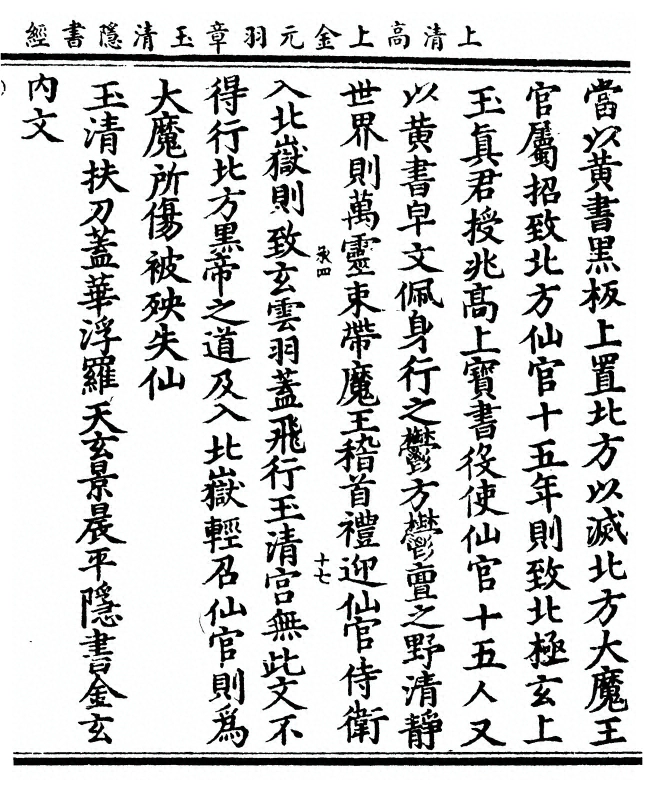 上清高上金元羽章玉清隱書經
當以黃書黑板上置北方以滅北方大魔王
官屬招致北方仙官十五年則致北極玄上
玉眞君授兆高上寶書役使仙官十五人又
以黃書皁文佩身行之鬱方鬱亶之野清靜
世界則萬靈束帶魔王稽首禮迎仙官侍衛
承四
十七
入北嶽則致玄雲羽蓋飛行玉清宫無此文不
得行北方黒帝之道及入北嶽輕召仙官則爲
大魔所傷被殃失仙
玉清扶刀蓋華浮羅天玄景晨平隱書金玄
內文